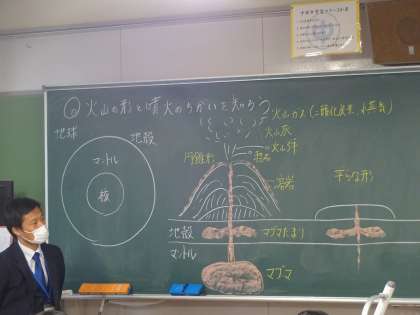 火山の形と噴火のちがいを知ろう
火山ガス(二酸化炭素、水蒸気)
火山灰
火山弾
地球
地殻
マントル
核
円錐形
溶岩
平らな形
地殻
マグマだまり
マントル
マグマ